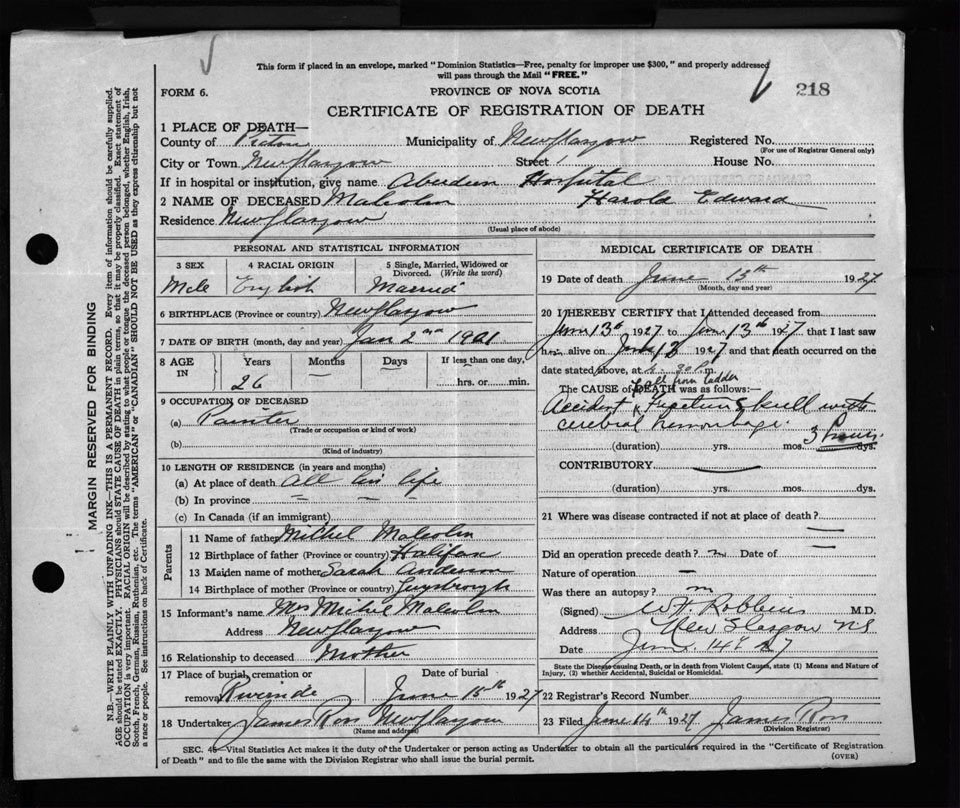 This form if placed in an envelope, marked "Dominion Statistics—Free, penalty for improper use $300," and properly addressed
will pass through the Mail "FREE."
218
FORM 6.
PROVINCE OF NOVA SCOTIA
CERTIFICATE OF REGISTRATION OF DEATH
1 PLACE OF DEATH—
County of Pictou Municipality of New Glasgow Registered No.
(For use of Registrar General only)
City or Town New Glasgow Street House No.
If in hospital or institution, give name Aberdeen Hospital
2 NAME OF DECEASED Malcolm Harold Edward
Residence New Glasgow
(Usual place of abode)
PERSONAL AND STATISTICAL INFORMATION
3 SEX 4 RACIAL ORIGIN 5 Single, Married, Widowed or
Divorced. (Write the word)
Male English Married
6 BIRTHPLACE (Province or country) New Glasgow
7 DATE OF BIRTH (month, day and year) Jan 2nd 1901
8 AGE IN Years Months Days If less than one day,
26 hrs. or min.
9 OCCUPATION OF DECEASED
(a) Painter
(Trade or occupation or kind of work)
(b)
(Kind of industry)
10 LENGTH OF RESIDENCE (in years and months)
(a) At place of death All his life
(b) In province
(c) In Canada (if an immigrant)
Parents
11 Name of father Michel Malcolm
12 Birthplace of father (Province or country) Halifax
13 Maiden name of mother Sarah Anderson
14 Birthplace of mother (Province or country) Guysborough
15 Informant's name Mrs Michel Malcolm
Address New Glasgow
16 Relationship to deceased Mother
17 Place of burial, cremation or Date of burial
removal Riverside June 15th 1927
18 Undertaker James Ross New Glasgow
(Name and address)
MEDICAL CERTIFICATE OF DEATH
19 Date of death June 13th 1927
(Month, day and year)
20 I HEREBY CERTIFY that I attended deceased from
June 13th 1927 to June 13th 1927 that I last saw
him alive on June 13 1927 and that death occurred on the
date stated above, at 30 P.m.
The CAUSE of DEATH was as follows:—
Fall from ladder
Accident Skull with
cerebral hemorrhage.
(duration) yrs. mos. 3 hours. dys.
CONTRIBUTORY
(duration) yrs. mos. dys.
21 Where was disease contracted if not at place of death?
Did an operation precede death? no Date of
Nature of operation
Was there an autopsy? no
(Signed) W.F. Robbins M.D.
Address New Glasgow NS
Date June 14th 27
State the Disease causing Death, or in death from Violent Causes, state (1) Means and Nature of
Injury, (2) whether Accidental, Suicidal or Homicidal.
22 Registrar's Record Number
23 Filed June 14th 1927 James Ross
(Division Registrar)
SEC. 45—Vital Statistics Act makes it the duty of the Undertaker or person acting as Undertaker to obtain all the particulars required in the "Certificate of Registration
of Death" and to file the same with the Division Registrar who shall issue the burial permit.
(OVER)
MARGIN RESERVED FOR BINDING
N.B.—WRITE PLAINLY, WITH UNFADING INK—THIS IS A PERMANENT RECORD. Every item of information should be carefully supplied.
AGE should be stated EXACTLY. PHYSICIANS should STATE CAUSE OF DEATH in plain terms, so that it may be properly classified. Exact statement of
OCCUPATION is very important. RACIAL ORIGIN will be described by stating to what people or tongue the deceased person belonged, whether English, Irish,
Scotch, French, German, Russian, Ruthenian, etc. The terms "AMERICAN" or "CANADIAN" SHOULD NOT BE USED as they express citizenship but not
a race or people. See instructions on back of Certificate.